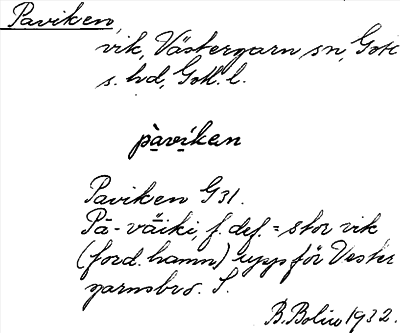 Paviken,
vik, Västergarn sn, Gotl
s. hd, Gotl. l.
pàviken
Paviken G31.
Pā-väiki, f. def. = stor vik
(ford. hamn) uppför Vester
garnsbro. S.
B. Bolin 1932.